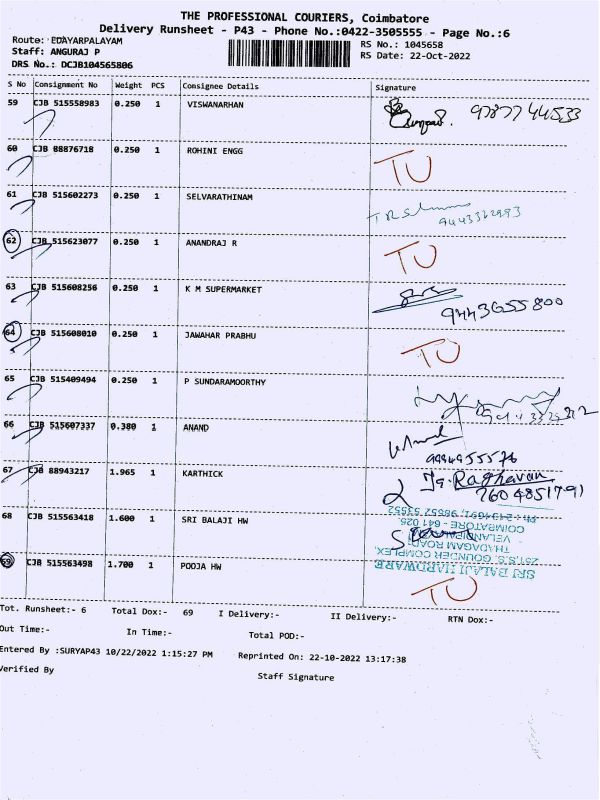 THE PROFESSIONAL COURIERS, Coimbatore
Delivery Runsheet - P43 - Phone No.:0422-3505555 - Page No.:6
Route: EDAYARPALAYAM
RS No.: 1045658
Staff: ANGURAJ P
RS Date: 22-Oct-2022
DRS No.: DCJB104565806
S No Consignment No Weight PCS Consignee Details Signature
59 CJB 515558983 0.250 1 VISWANARHAN
60 CJB 88876718 0.250 1 ROHINI ENGG TU
61 CJB 515602273 0.250 1 SELVARATHINAM
62 CJB 515623077 0.250 1 ANANDRAJ R TU
63 CJB 515608256 0.250 1 K M SUPERMARKET 9443655800
64 CJB 515608010 0.250 1 JAWAHAR PRABHU TU
65 CJB 515409494 0.250 1 P SUNDARAMOORTHY
66 CJB 515607337 0.380 1 ANAND
67 CJB 88943217 1.965 1 KARTHICK Raghavan
7604851791
68 CJB 515563418 1.600 1 SRI BALAJI HW
SRI BALAJI HARDWARE
251, S.S. GOUNDER COMPLEX
THADAGAM ROAD
VELANDIPALAYAM
COIMBATORE - 641 025.
69 CJB 515563498 1.700 1 POOJA HW TU
Tot. Runsheet:- 6 Total Dox:- 69 I Delivery:- II Delivery:- RTN Dox:-
Out Time:- In Time:- Total POD:-
Entered By :SURYAP43 10/22/2022 1:15:27 PM Reprinted On: 22-10-2022 13:17:38
Verified By Staff Signature